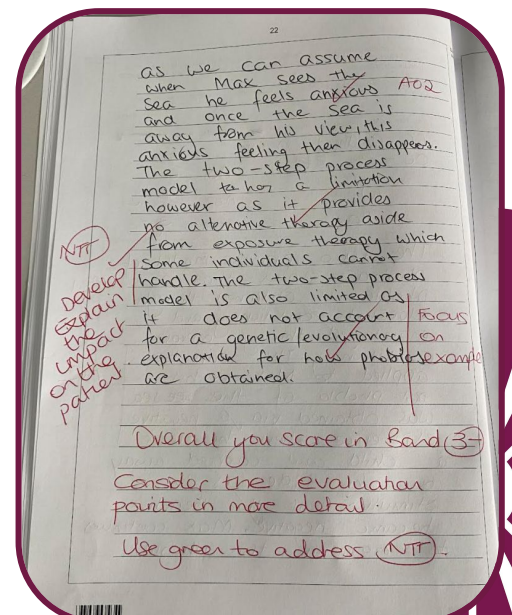 22
as we can assume
when Max sees the
sea he feels anxious
AO2
and once the sea is
away from his view, this
anxious feeling then disappears.
The two-step process
model to has a limitation
however as it provides
no altenative therapy aside
from exposure therapy which
some individuals cannot
handle. The two-step process
model is also limited as
it does not account
for a genetic/evolutionary
explanation for how phobias
are obtained.
NTT
Develop
Explain
the
impact
on the
patient
Focus
on
example
Overall you score in Band 3-
Consider the evaluation
points in more detail.
Use green to address NTT.